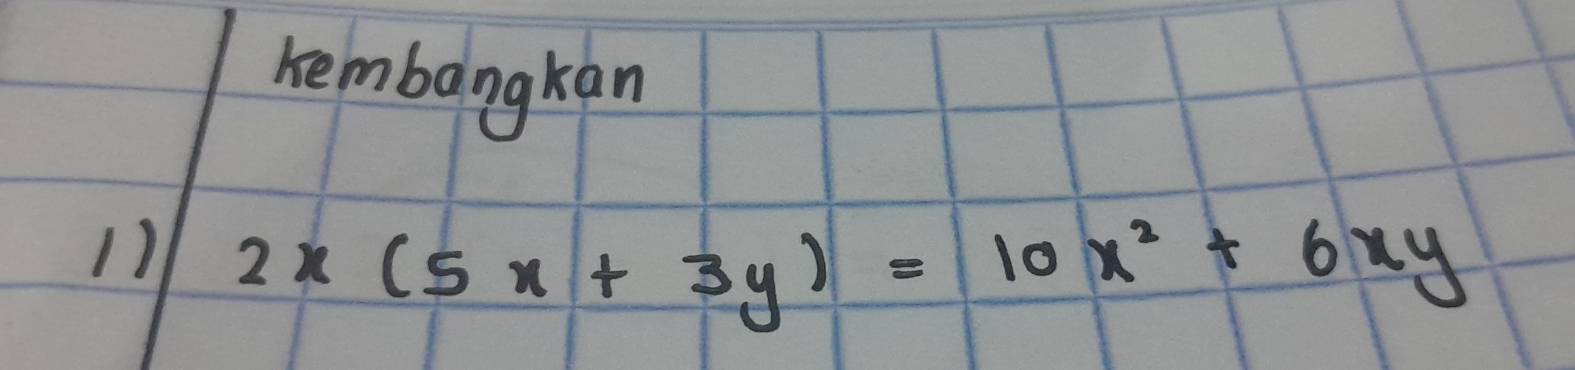 kembangkan
1) 2x (5x + 3y) = 10x² + 6xy